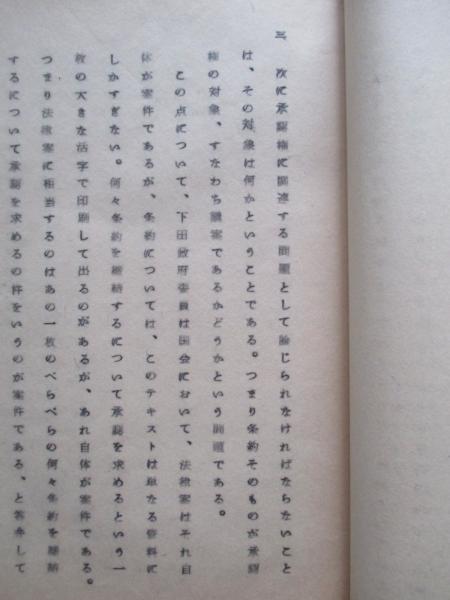 三　次に承認権に関連する問題として論じられなければならないこと
は、その対象は何かということである。つまり条約そのものが承認
権の対象、すなわち議案であるかどうかという問題である。
この点について、下田政府委員は国会において、法律案はそれ自
体が案件であるが、条約については、このテキストは単なる資料に
しかすぎない。何々条約を締結するについて承認を求めるという一
枚の大きな活字で印刷して出るのがあるが、あれ自体が案件である。
つまり法律案に相当するのはあの一枚のぺらぺらの何々条約を締結
するについて承認を求めるの件をいうのが案件である、と答弁して